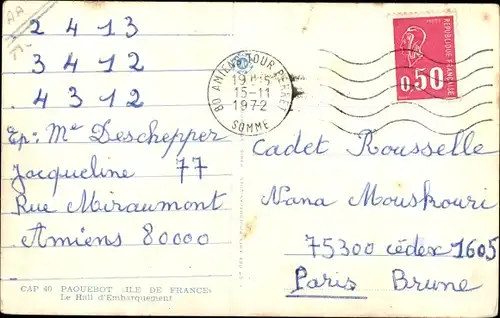 2 4 1 3
3 4 1 2
4 3 1 2
Ep: Me Deschepper
Jacqueline 77
Rue Miraumont
Amiens 80000
CAP 40 PAQUEBOT «ILE DE FRANCE»
Le Hall d'Embarquement
80 AMIENS TOUR PERRET
15-11
1972
SOMME
REPUBLIQUE FRANÇAISE
0,50
Cadet Rousselle
Nana Mouskouri
75300 cédex 1605
Paris Brune